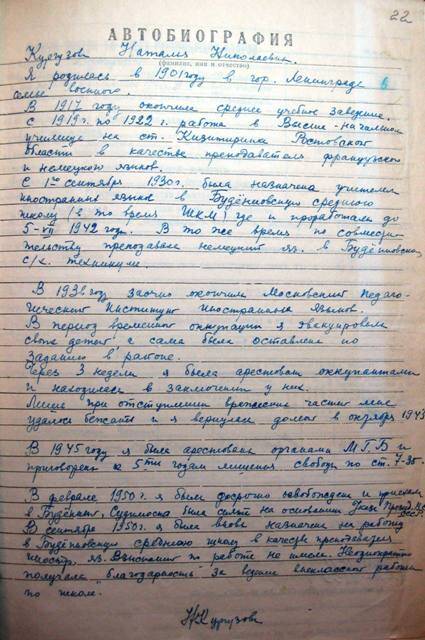 22
АВТОБИОГРАФИЯ
Кургузова Наталия Николаевна.
(фамилия, имя и отчество)
Я родилась в 1901 году в гор. Ленинграде в
семье военного.
В 1917 году окончила среднее учебное заведение.
С 1919 г. по 1922 г. работа в Высше-начальном
училище на ст. Кизитиринка Ростовской
области в качестве преподавателя французского
и немецкого языков.
С 1го сентября 1930 г. была назначена учителем
иностранных языков в Будённовскую среднюю
школу (в то время ШКМ) где и проработала до
5-VII 1942 года. В то же время по совмести-
тельству преподавала немецкий яз. в Будённовском
с/х. техникуме.
В 1938 году заочно окончила Московский Педаго-
гический Институт Иностранных Языков.
В период временной оккупации я эвакуировала
своих детей, а сама была оставлена по
заданию в районе.
Через 3 недели я была арестована оккупантами
и находилась в заключении у них.
Лишь при отступлении вражеских частей мне
удалось бежать и я вернулась домой в октябре 1943
В 1945 году я была арестована органами МГБ и
приговорена к 5ти годам лишения свободы по ст. 7-35.
В феврале 1950 г. я была досрочно освобождена и приехала
в Будённовск. Судимость была снята на основании Указа През. В.С.
СССР.
В сентябре 1950 г. я была вновь назначена на работу
в Будённовскую среднюю школу в качестве преподавателя
иностр. яз. Взысканий по работе не имела. Неоднократно
получала "благодарность" за ведение внеклассной работы
по школе.
Н Кургузова